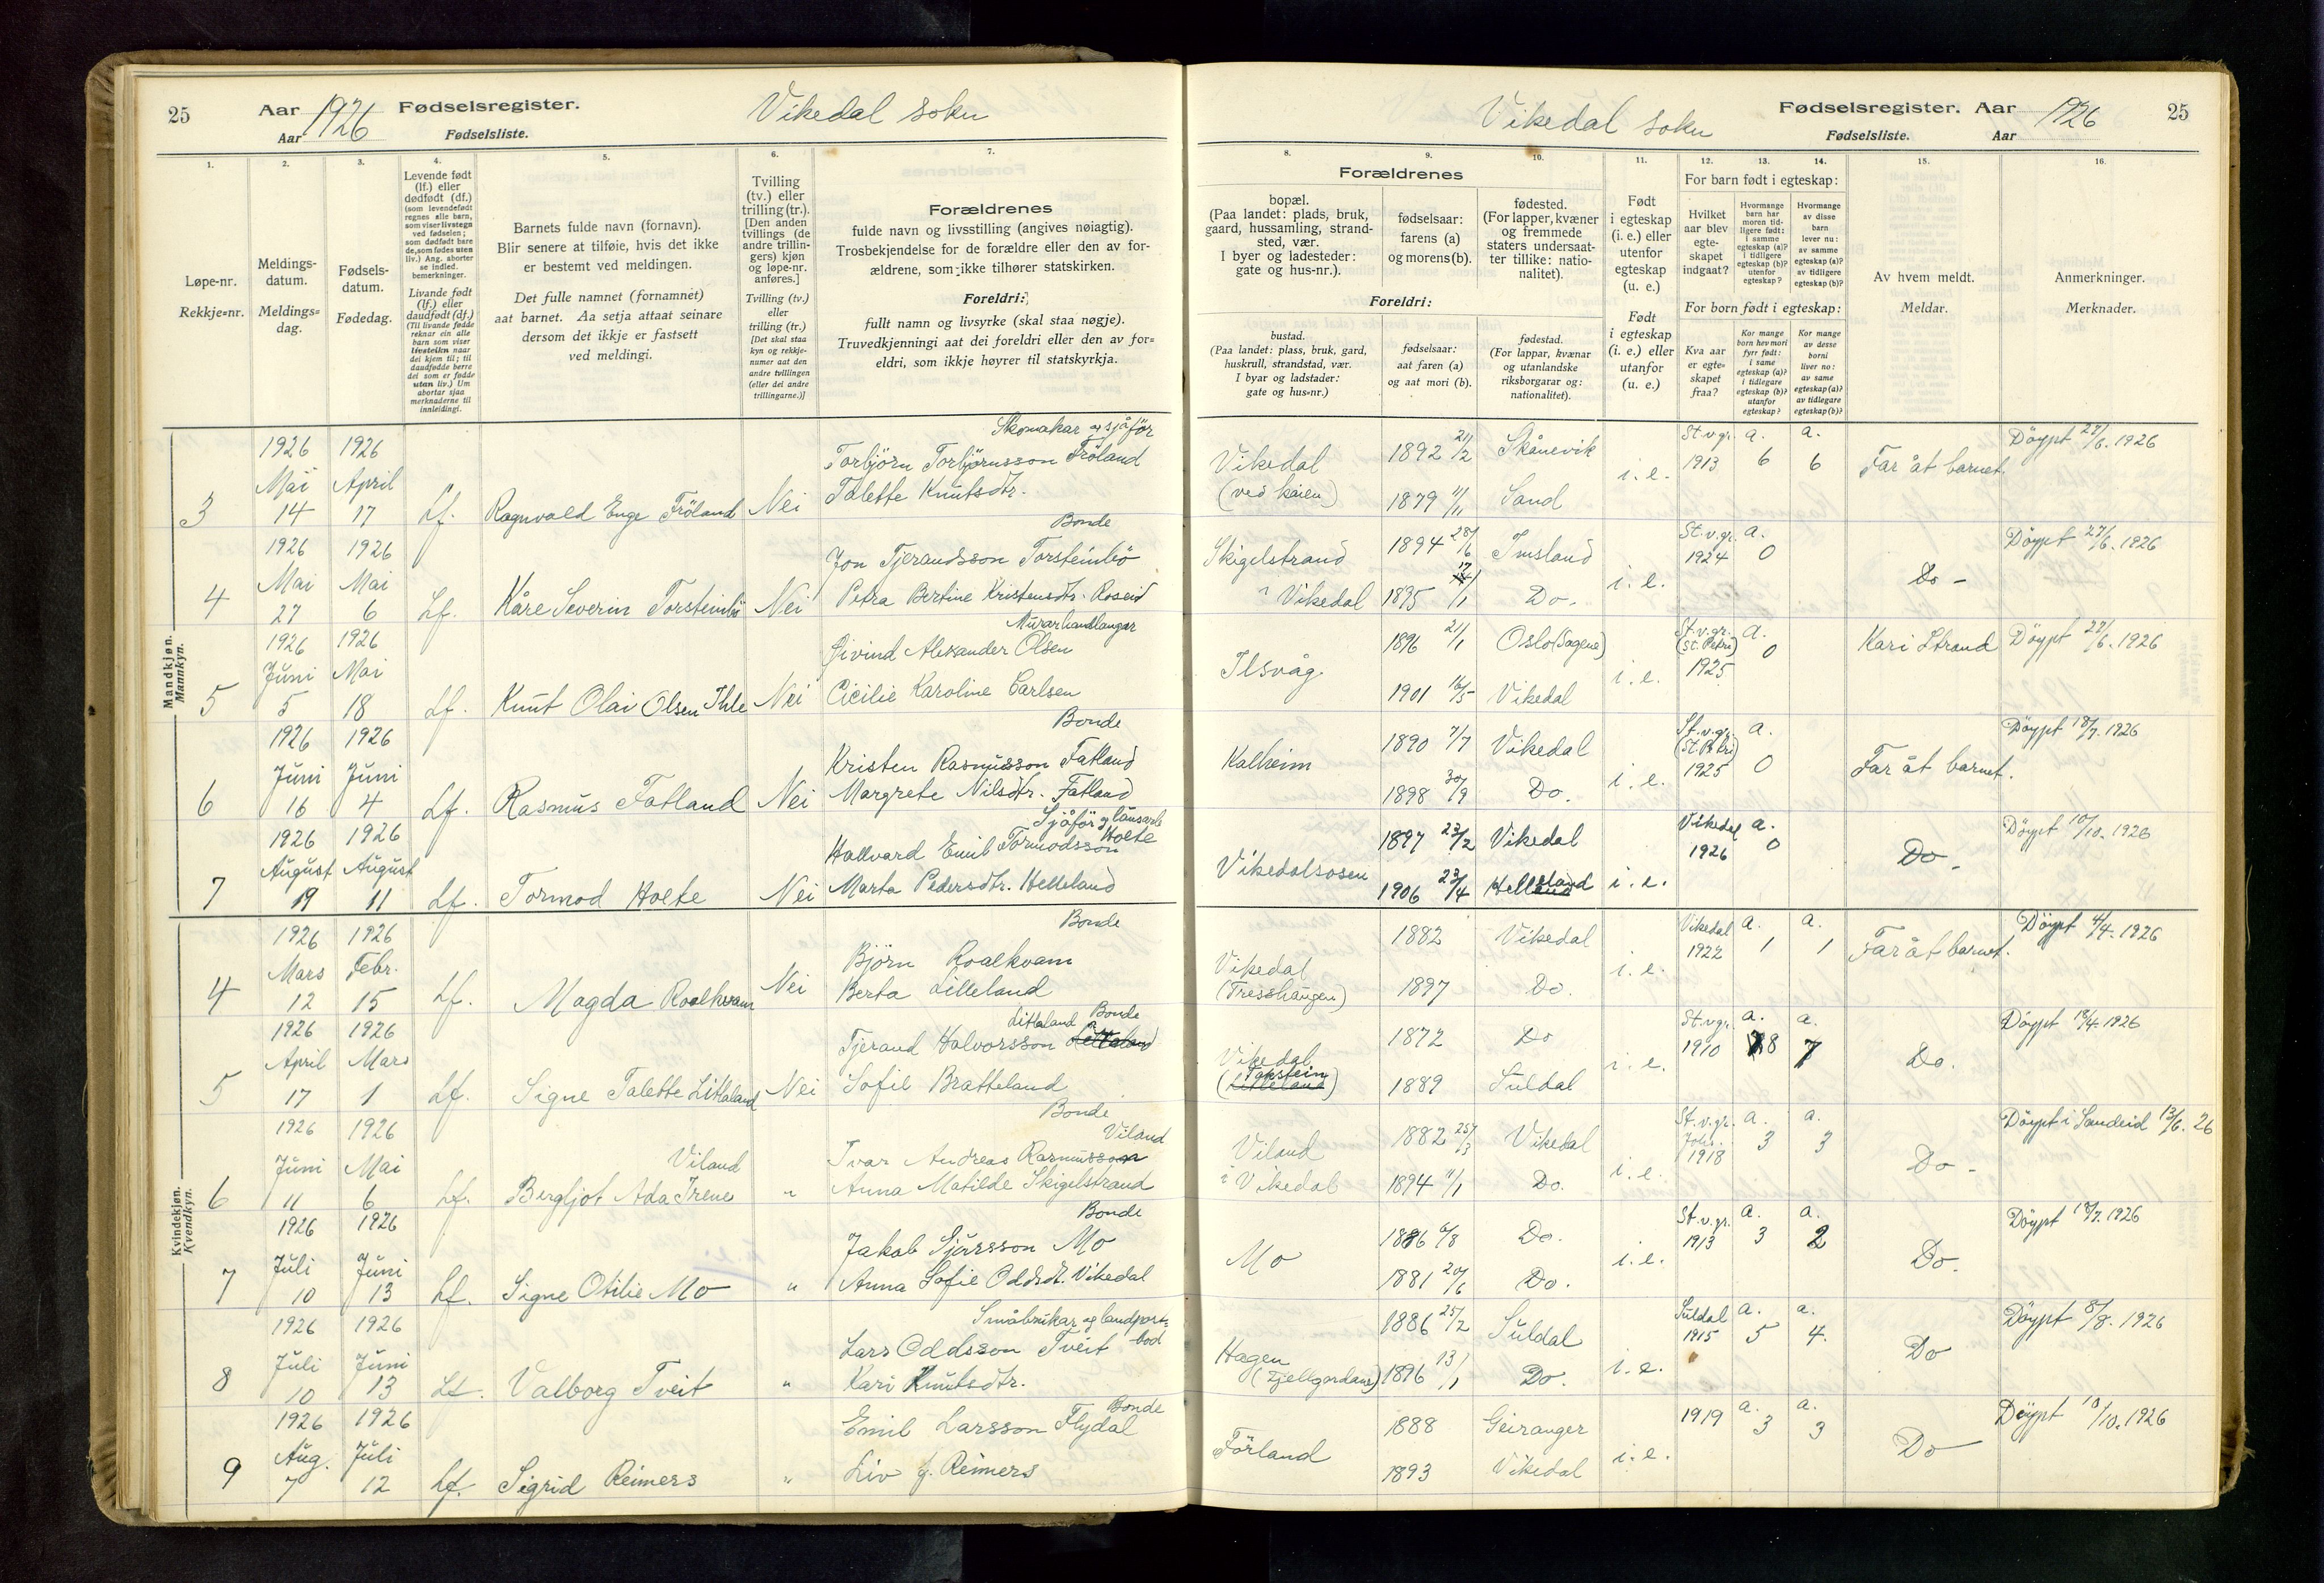 25
Aar 1926 Fødselsregister.
Aar Fødselsliste.
Vikedal sokn
1.
2.
3.
4.
5.
6.
7.
Løpe-nr.
Rekkje=nr.
Meldings-
datum.
Meldings=
dag.
Fødsels-
datum.
Fødedag.
Levende født
(lf.) eller
dødfødt (df.)
(som levendefødt
regnes alle barn,
som viser livstegn
ved fødselen;
som dødfødt bare
de, som fødes uten
liv.) Ang. aborter
se indled.
bemerkninger.
Livande født
(lf.) eller
daudfødt (df.)
(Til livande fødde
reknar ein alle
barn som viser
livsteikn naar
dei kjem til; til
daudfødde berre
dei som er fødde
utan liv.) Um
abortar sjaa
merknaderne til
innleidingi.
Barnets fulde navn (fornavn).
Blir senere at tilføie, hvis det ikke
er bestemt ved meldingen.
Det fulle namnet (fornamnet)
aat barnet. Aa setja attaat seinare
dersom det ikkje er fastsett
ved meldingi.
Tvilling
(tv.) eller
trilling (tr.).
[Den anden
tvillings (de
andre trillin-
gers) kjøn
og løpe-nr.
anføres.]
Tvilling (tv.)
eller
trilling (tr.)
[Det skal staa
kyn og rekkje-
numer aat den
andre tvillingen
(eller dei andre
trillingarne.)]
Forældrenes
fulde navn og livsstilling (angives nøiagtig).
Trosbekjendelse for de forældre eller den av for-
ældrene, som ikke tilhører statskirken.
Foreldri:
fullt namn og livsyrke (skal staa nøgje).
Truvedkjenningi aat dei foreldri eller den av for=
eldri, som ikkje høyrer til statskyrkja.
Mandkjøn.
Mannkyn.
3
1926 Mai 14
1926 April 17
Lf.
Ragnvald Enge Fröland
Nei
Skomakar og sjåför
Torbjörn Torbjörnsson Fröland
Talette Knutsdtr.
4
1926 Mai 27
1926 Mai 6
Lf.
Kåre Severin Torsteinbö
Nei
Bonde
Jon Tjerandsson Torsteinbö
Petra Bertine Kristensdtr. Roseid
5
1926 Juni 5
1926 Mai 18
Lf.
Knut Olai Olsen Ihle
Nei
Murarhandlangar
Øivind Alexander Olsen
Cicilie Karoline Carlsen
6
1926 Juni 16
1926 Juni 4
Lf.
Rasmus Fatland
Nei
Bonde
Kristen Rasmusson Fatland
Margrete Nilsdtr. Fatland
7
1926 August 19
1926 August 11
Lf.
Tormod Holte
Nei
Sjåför og
Hallvard Emil Tormodsson Holte
Marta Pedersdtr. Helleland
Kvindekjøn.
Kvendkyn.
4
1926 Mars 12
1926 Febr. 15
Lf.
Magda Roalkvam
Nei
Bonde
Björn Roalkvam
Berta Lilleland
5
1926 April 17
1926 Mars 1
Lf.
Signe Talette Litlaland
Nei
Litlaland Bonde
Tjerand Halvorsson
Sofie Bratteland
6
1926 Juni 11
1926 Mai 6
Lf.
Viland
Bergljot Ada Irene
"
Bonde
Viland
Ivar Andreas Rasmusson
Anna Matilde Skigelstrand
7
1926 Juli 10
1926 Juni 13
Lf.
Signe Otilie Mo
"
Bonde
Jakob Sjursson Mo
Anna Sofie Oddsdt. Vikedal
8
1926 Juli 10
1926 Juni 13
Lf.
Valborg Tveit
"
Småbrukar og landpost=
bod
Lars Oddsson Tveit
Kari Knutsdtr.
9
1926 Aug. 7
1926 Juli 12
Lf.
Sigrid Reimers
"
Bonde
Emil Larsson Flydal
Liv f. Reimers
Vikedal sokn
Fødselsregister. Aar 1926
Fødselsliste. Aar
25
8.
9.
10.
11.
12.
13.
14.
15.
16.
Forældrenes
bopæl.
(Paa landet: plads, bruk,
gaard, hussamling, strand-
sted, vær.
I byer og ladesteder:
gate og hus-nr.).
fødselsaar:
farens (a)
og morens (b).
fødested.
(For lapper, kvæner
og fremmede
staters undersaat-
ter tillike: natio-
nalitet).
Foreldri:
bustad.
(Paa landet: plass, bruk, gard,
huskrull, strandstad, vær.
I byar og ladstader:
gate og hus=nr.)
fødselsaar:
aat faren (a)
og aat mori (b).
fødestad.
(For lappar, kvænar
og utanlandske
riksborgarar og:
nationalitet).
Født
i egteskap
(i. e.) eller
utenfor
egteskap
(u. e.)
Født
i egteskap
(i. e.) eller
utanfor
(u. e.)
For barn født i egteskap:
Hvilket
aar blev
egte-
skapet
indgaat?
Hvormange
barn har
moren tid-
ligere født:
i samme
egteskap (a)?
i tidligere
egteskap (b)?
utenfor
egteskap?
Hvormange
av disse
barn
lever nu:
av samme
egteskap (a)?
av tidligere
egteskap (b)?
For born født i egteskap:
Kva aar
er egte=
skapet
fraa?
Kor mange
born hev mori
fyrr født:
i same
egteskap (a)?
i tidlegare
egteskap (b)?
utanfor
egteskap?
Kor mange
av desse
borni
liver no:
av same
egteskap (a)?
av tidlegare
egteskap (b)?
Av hvem meldt.
Meldar.
Anmerkninger.
Merknader.
Vikedal
(ved kaien)
1892 21/2
1879 11/11
Skånevik
Sand
i. e.
St.v.gr.
1913
a.
6
a.
6
Far åt barnet.
Döypt 27/6. 1926
Skigelstrand
i Vikedal
1894 28/6
1895 17/1
Imsland
Do.
i. e.
St.v.gr.
1924
a.
0
Do -
Döypt 27/6. 1926
Ilsvåg
1896 21/1
1901 16/5
Oslo (Sagene)
Vikedal
i. e.
St.v.gr.
(St. Petri)
1925
a.
0
Kari Strand
Döypt 27/6. 1926
Kalheim
1890 7/7
1898 30/9
Vikedal
Do.
i. e.
St.v.gr.
(St. Petri)
1925
a.
0
Far åt barnet.
Döypt 18/7. 1926
Vikedalsosen
1897 23/2
1906 23/4
Vikedal
i. e.
Vikedal
1926
a.
0
Do -
Döypt 10/10. 1926
Vikedal
(Tresshaugen)
1882
1897
Vikedal
Do.
i. e.
Vikedal
1922
a.
1
a.
1
Far åt barnet.
Döypt 4/4. 1926
Vikedal
(Takstein
Lilleland)
1872
1889
Do
Suldal
i. e.
St.v.gr.
1910
a.
8
a.
7
Do.
Döypt 18/4. 1926
Viland
i Vikedal
1882 25/3
1894 11/1
Vikedal
Do.
i. e.
St.v.gr.
Joh.
1918
a.
3
a.
3
Do -
Döypt i Sandeid 13/6. 26
Mo
1886 6/8
1881 20/6
Do.
Do.
i. e.
St.v.gr.
1913
a.
3
a.
2
Do.
Döypt 18/7. 1926
Hagen
1886 25/2
1896 13/1
Suldal
Do.
i. e.
Suldal
1915
a.
5
a.
4.
Do
Döypt 8/8. 1926
Förland
1888
1893
Geiranger
Vikedal
i. e.
1919
a.
3
a.
3
Do
Döypt 10/10. 1926